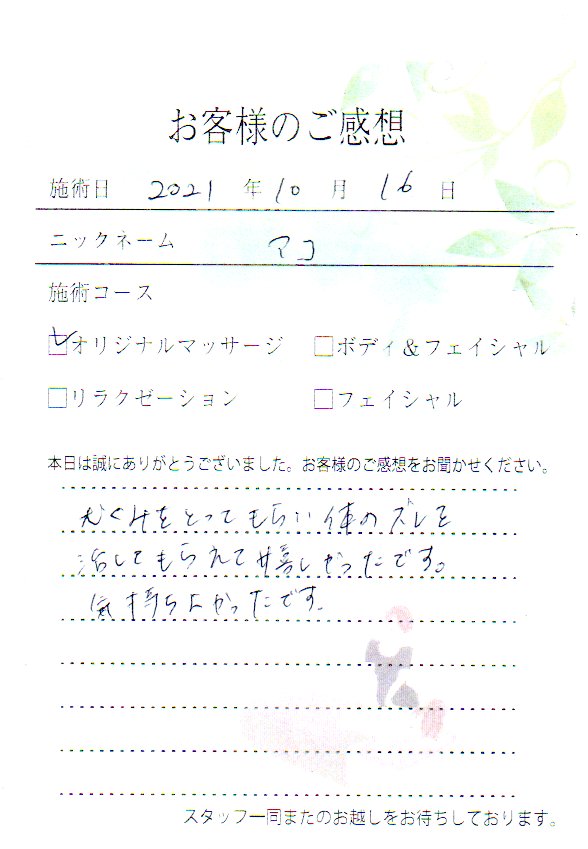 お客様のご感想
施術日 2021 年 10 月 16 日
ニックネーム マコ
施術コース
オリジナルマッサージ ボディ&フェイシャル
リラクゼーション フェイシャル
本日は誠にありがとうございました。お客様のご感想をお聞かせください。
むくみをとってもらい体のズレを
治してもらえて嬉しかったです。
気持ちよかったです。
スタッフ一同またのお越しをお待ちしております。